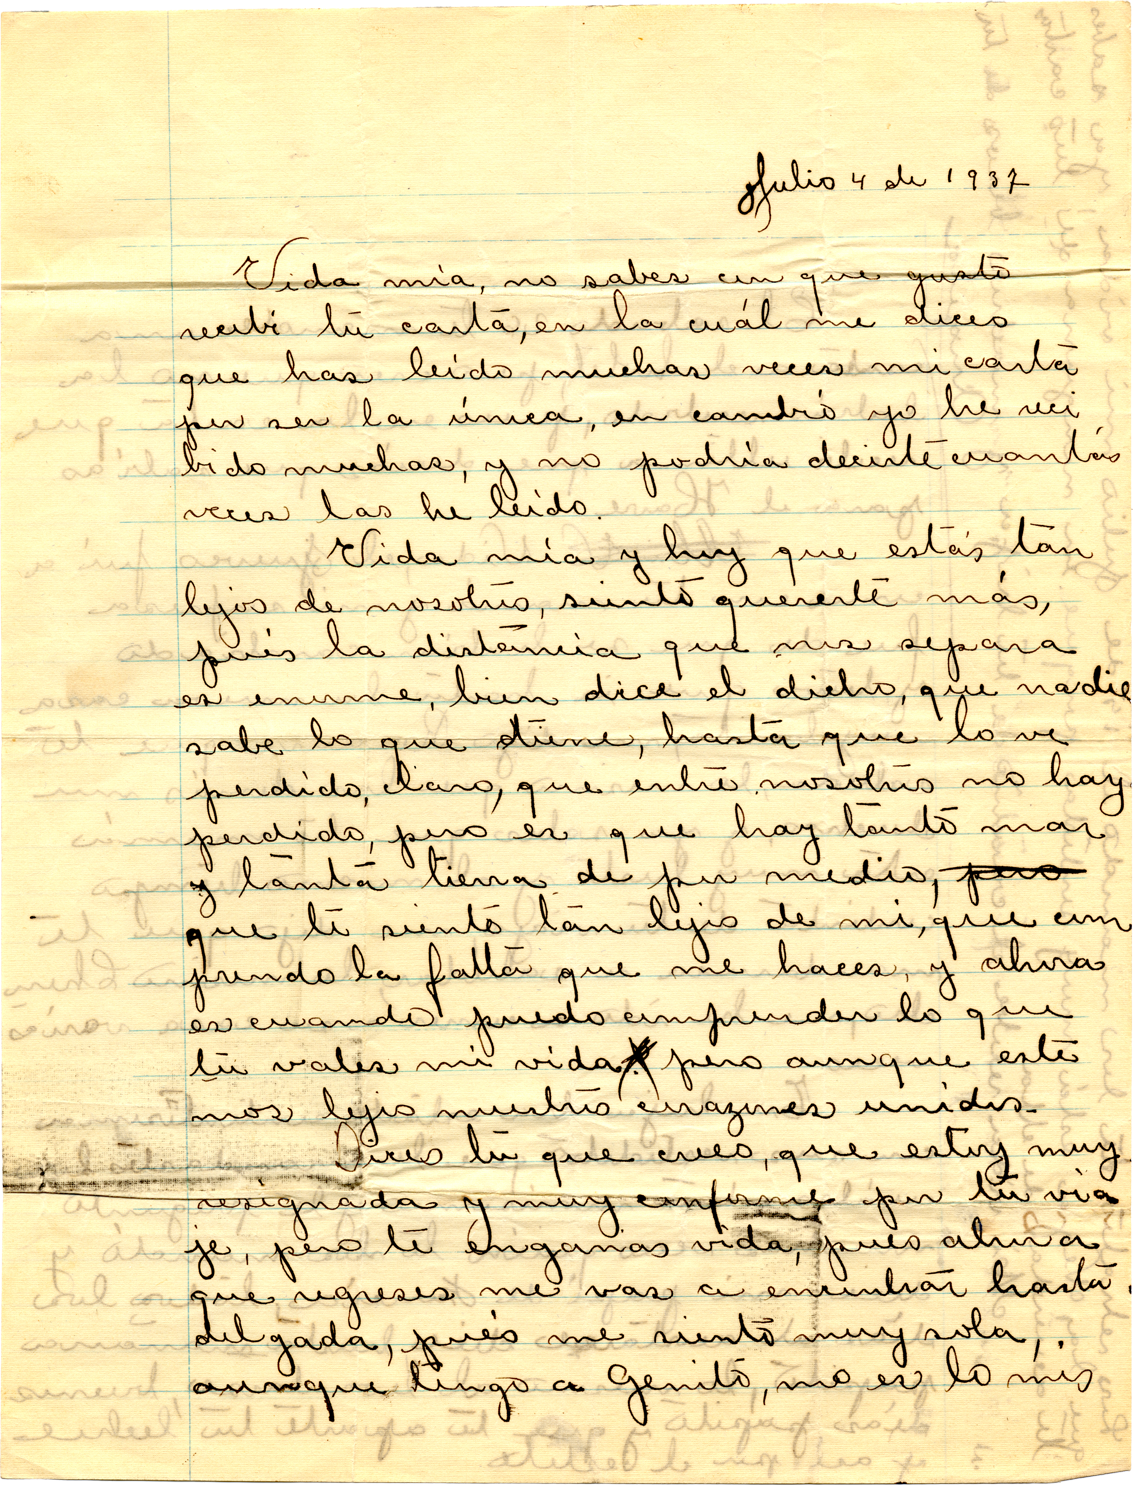 Julio 4 de 1937
Vida mía, no sabes con que gusto
recibí tú carta, en la cuál me dices
que has leido muchas veces mi carta
por ser la única, en cambio yo he reci
bido muchas, y no podría decirte cuantás
veces las he leido.
Vida mía y hoy que estás tan
lejos de nosotros, siento quererte más,
pués la distáncia que nos separa
es enorme, bien dice el dicho, que nadie
sabe lo que tiene, hasta que lo ve
perdido, claro, que entre nosotros no hay
perdido, pero es que hay tanto mar
y tanta tierra de por medio, pero
que te siento tan lejos de mi, que com
prendo la falta que me haces, y ahora
es cuando puedo comprender lo que
tú vales mi vida. pero aunque este
mos lejos nuestros corazones unidos.
Dices tú que crees, que estoy muy
resignada y muy conforme por tú via
je, pero te enganas vida, pues ahora
que regreses me vas a encontrar hasta
delgada, pués me siento muy sola,
aunque tengo a Genito, no es lo mis